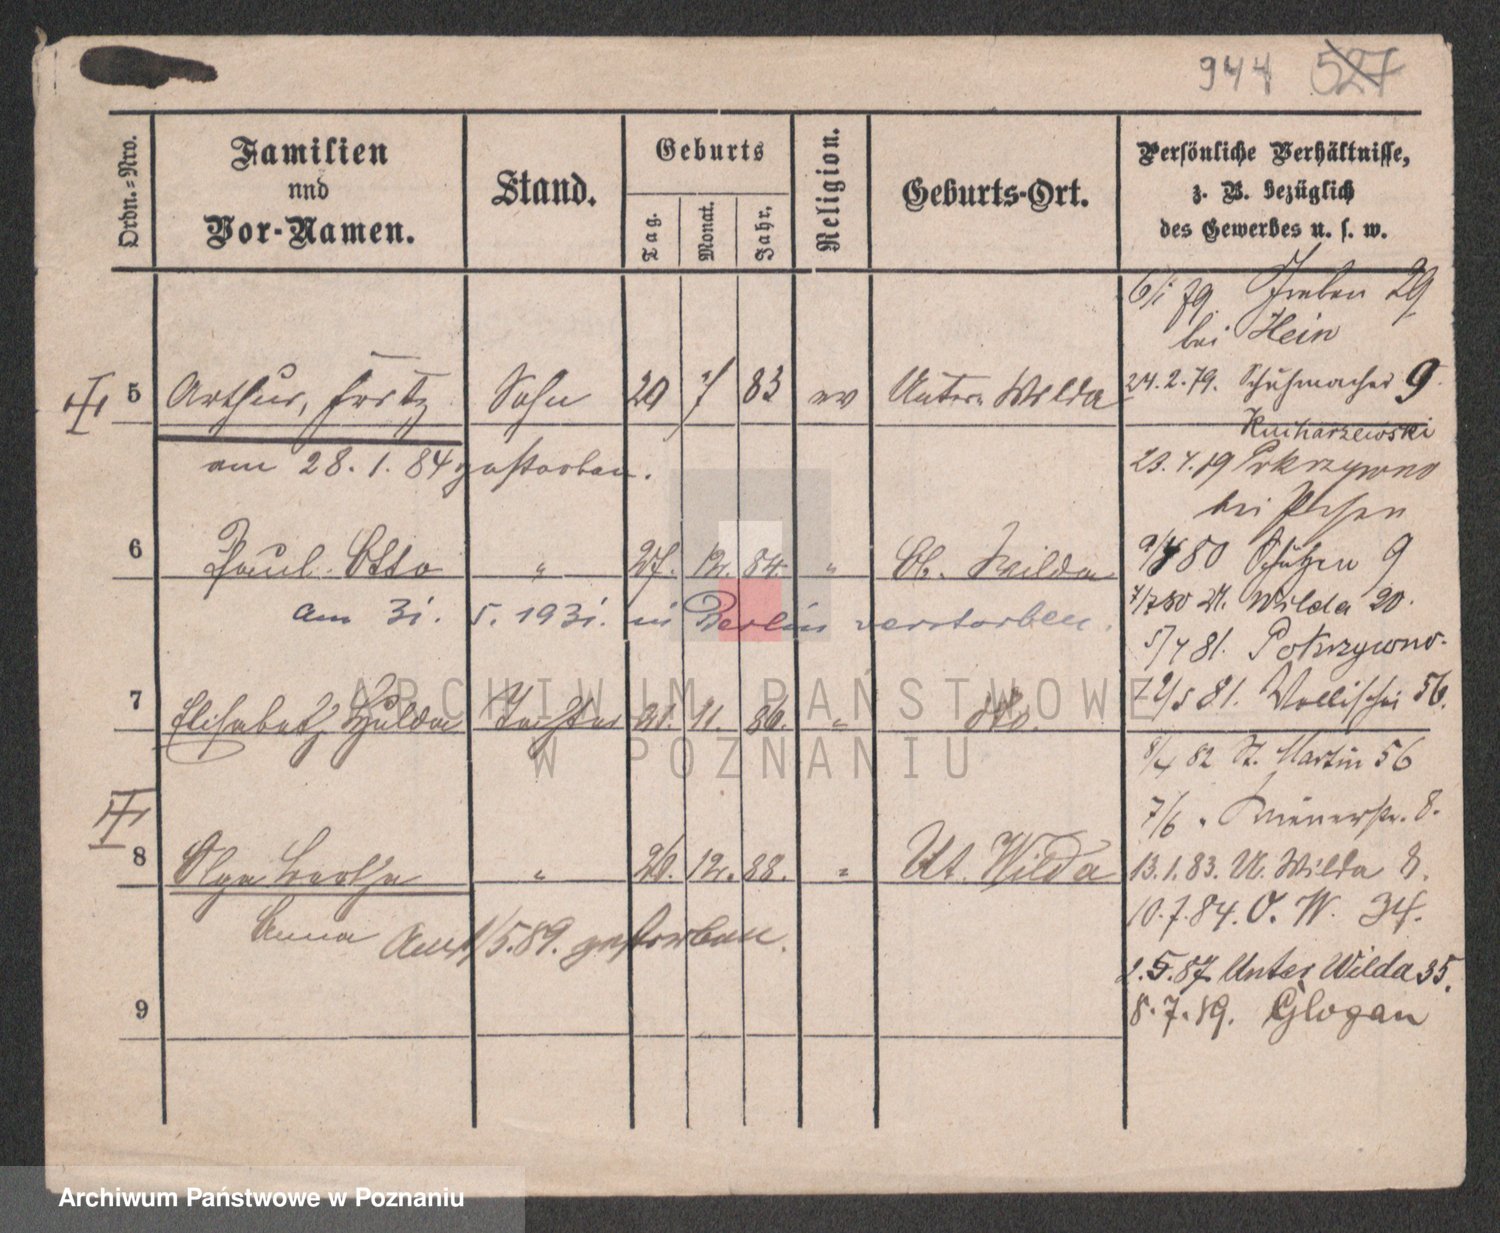 944 527
Ordn.=Nro.
Familien
und
Vor-Namen.
Stand.
Geburts
Tag.
Monat.
Jahr.
Religion.
Geburts-Ort.
Persönliche Verhältnisse,
z. B. bezüglich
des Gewerbes u. s. w.
6/1 79 Graben 29
bei Hein
5 Arthur, Fritz Sohn 20 7 83 ev Unter Wilda
24.2.79. Schuhmacher 9.
Kucharzewski
am 28. 1. 84 gestorben.
23.4.79 Pokrzywno
bei Posen
6 Paul Otto " 27. 12. 84. " Ob. Wilda
80 Schützen 9
U. Wilda 20.
am 31. 5. 1931. in Berlin verstorben.
5/4 81. Pokrzywno.
7 Elisabeth Hulda Tochter 21. 11. 86. " dto.
81. Wallischei 56.
8/4 82 St. Martin 56
7/6 " 8.
8 Olga Bertha " 26. 12. 88. " Ut. Wilda
13.1.83. U. Wilda 8.
10.7.84. O. W. 34.
Anna Am 5.89. gestorben.
2.5.87 Unter Wilda 35.
8.7.89. Glogau
9
ARCHIWUM PAŃSTWOWE
W POZNANIU
Archiwum Państwowe w Poznaniu